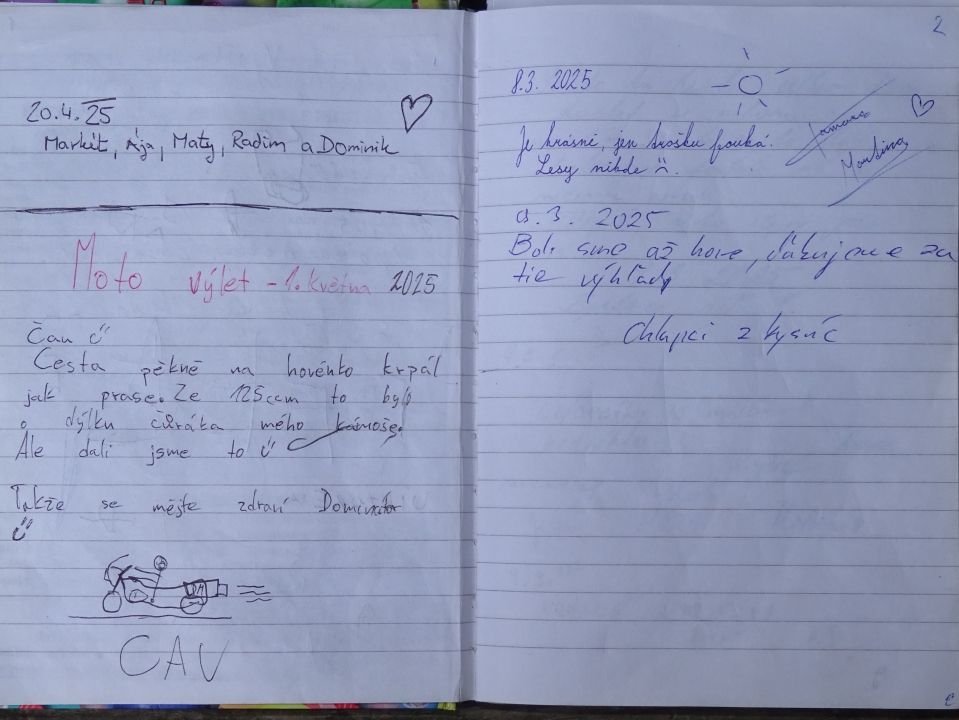 20.4. 25
Markét, Ája, Maty, Radim a Dominik
Moto výlet - 1. května 2025
Čau
Cesta pěkně na hovénko krpál
jak prase. Ze 125ccm to bylo
o dýlku čůráka mého kámoše.
Ale dali jsme to
Takže se mějte zdraví Dominátor
CAV
2
8.3. 2025
Je krásně, jen trošku fouká.
Lesy nikde
Tamara
Martina
9.3. 2025
Boli sme až hore, ďakujeme za
tie výhľady
Chlapci z Kysúc